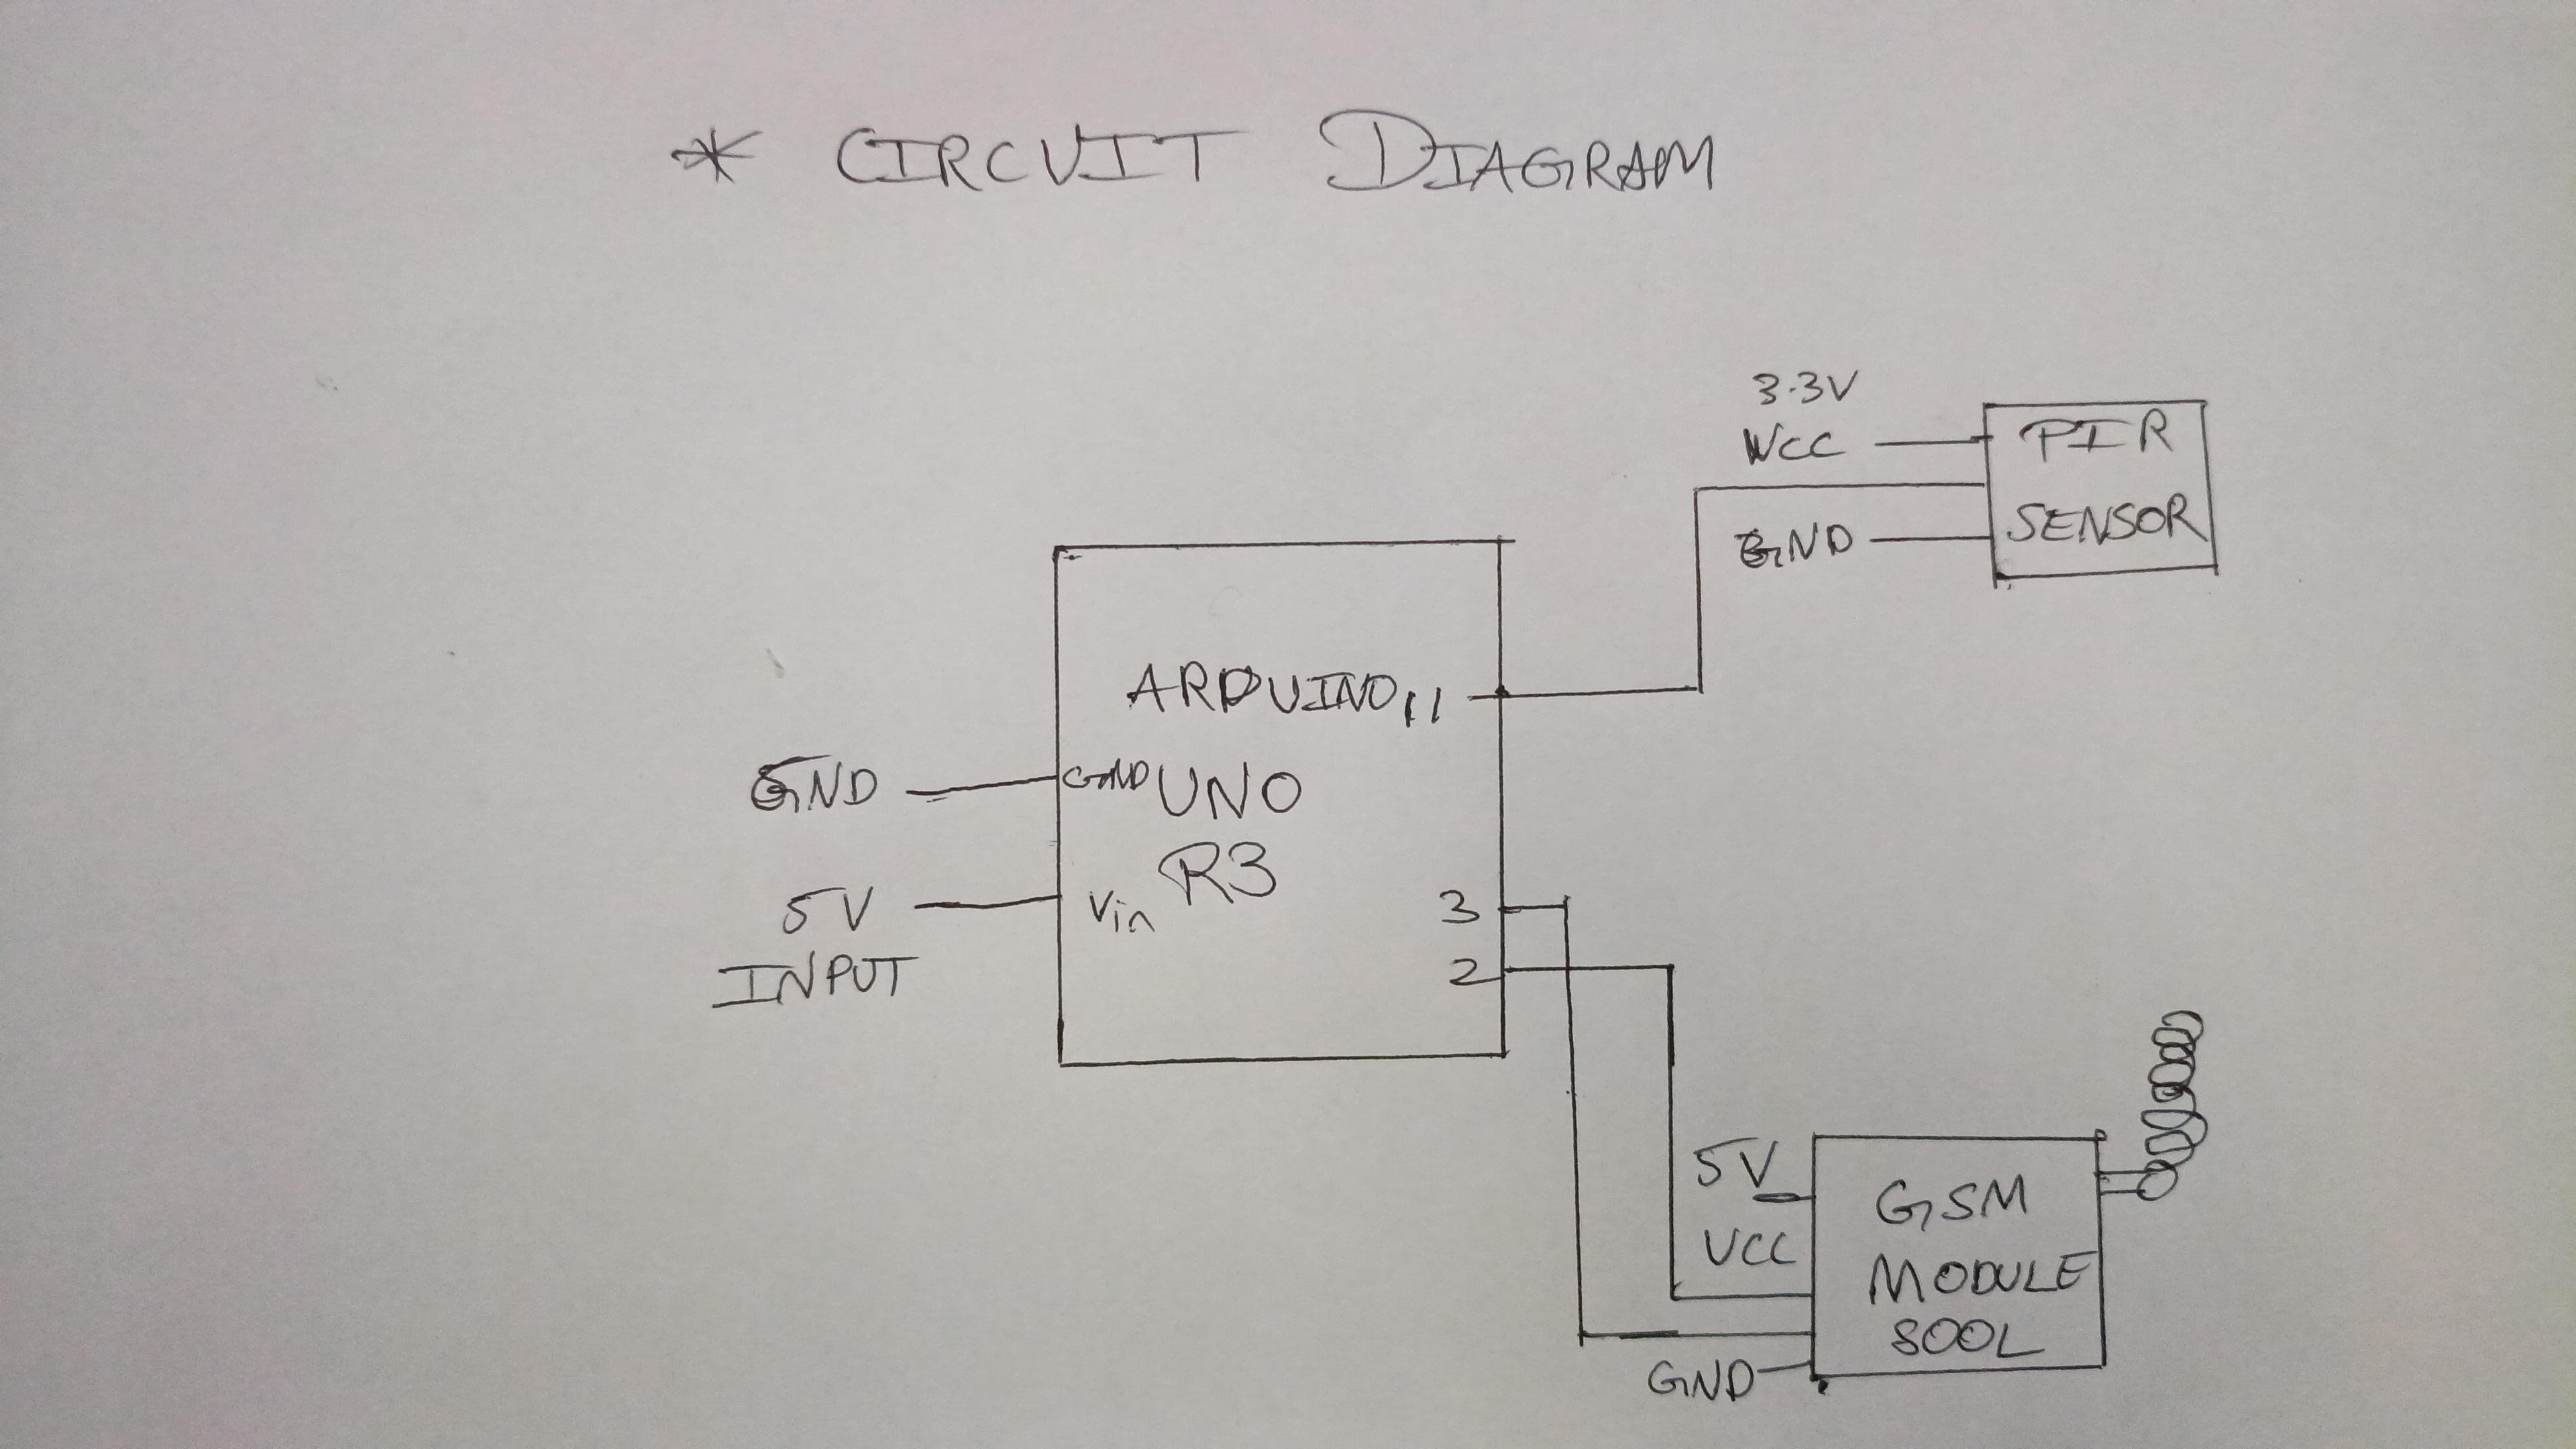 * CIRCUIT DIAGRAM
3.3V
VCC
GND
PIR
SENSOR
ARDUINO
UNO
R3
11
GND
GND
5V
INPUT
Vin
3
2
5V
VCC
GND
GSM
MODULE
800L